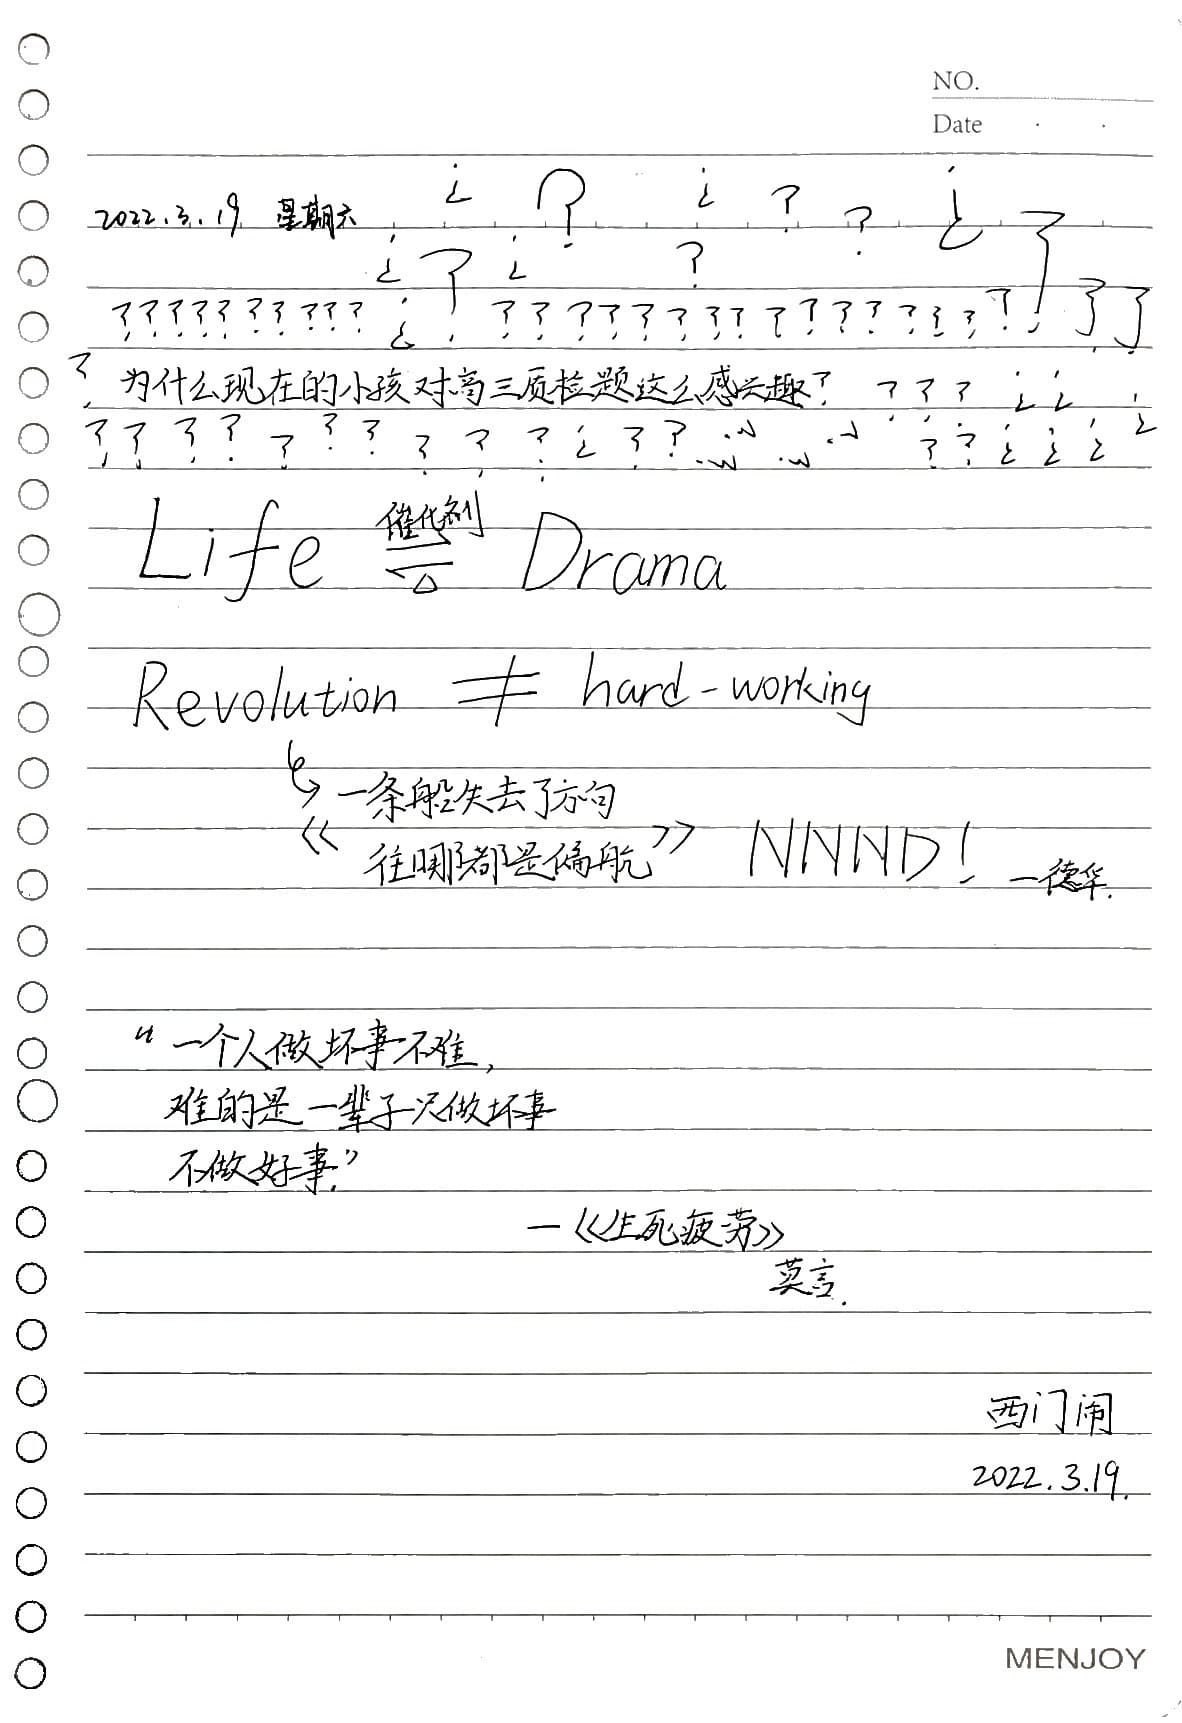 NO.
Date · ·
¿ ? ¿ ? ? ¿
2022.3.19 星期六
¿ ? ¿ ? ?
?????????? ¿ ??????????????????? ??
? 为什么现在的小孩对高三质检题这么感兴趣? ? ? ? ¿ ¿ ¿
? ? ? ? ? ? ? ? ? ? ¿ ? ? ? ? ¿ ¿ ¿
Life 催化剂 ⇌ △ Drama
Revolution ≠ hard-working
↳ 一条船失去了方向
《 往哪都是偏航 》 NNND!
—德华.
“一个人做坏事不难,
难的是一辈子只做坏事
不做好事.”
—《生死疲劳》
莫言.
西门闹
2022.3.19.
MENJOY